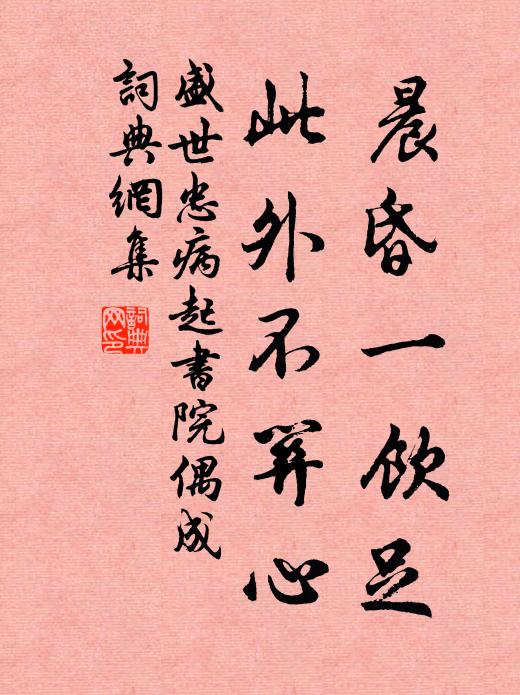 晨昏一飲足
此外不心
盛世忠病起書院偶成
詞典網集
詞典网印